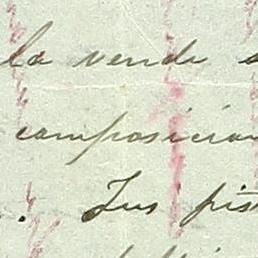 la vende s
composicion
. Tus pis